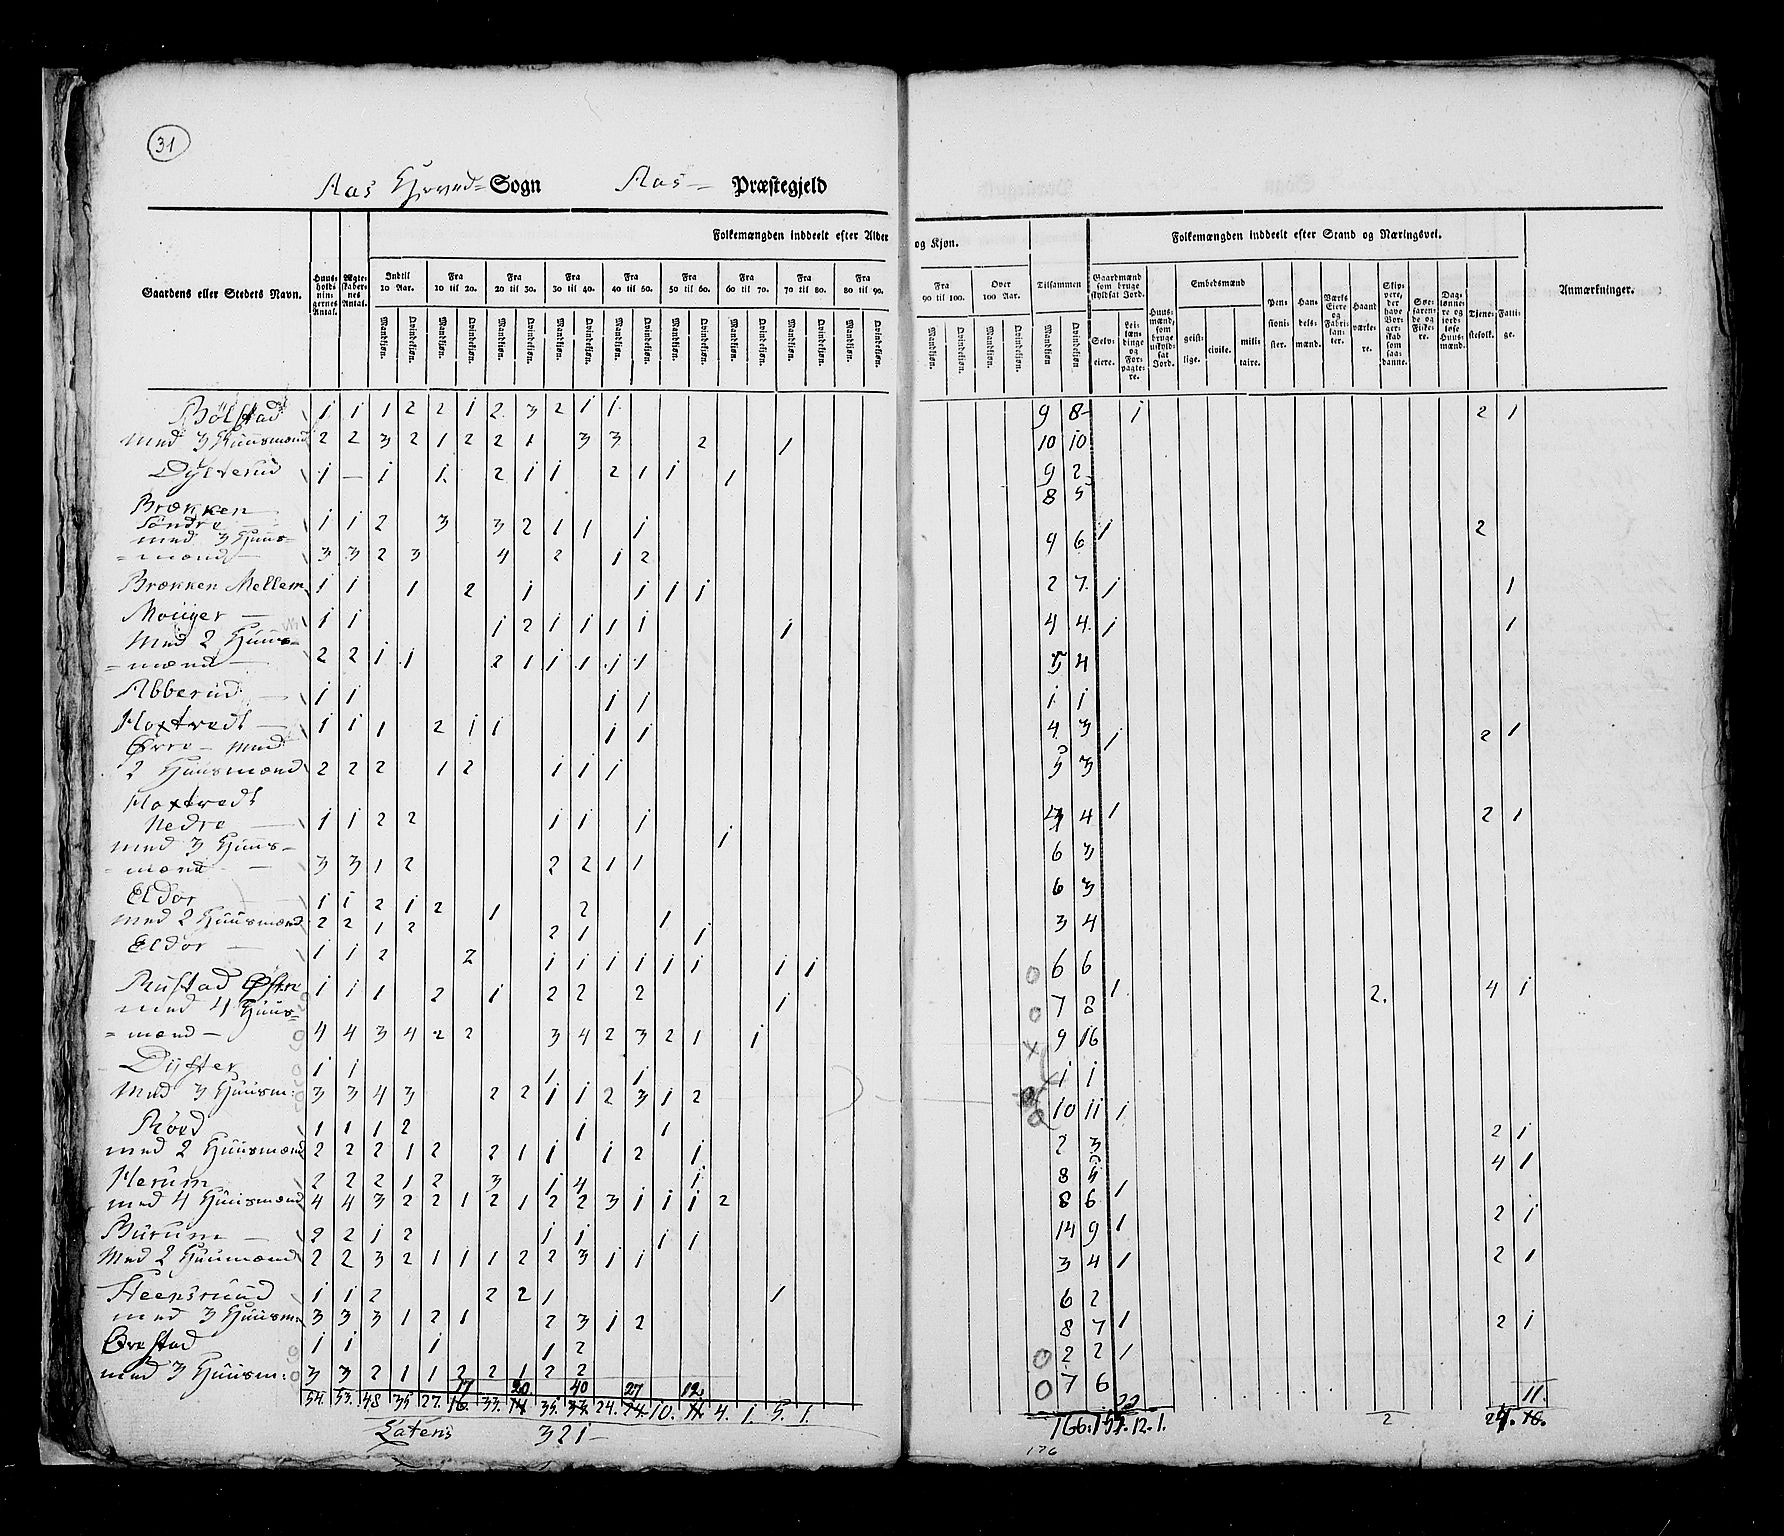 31
Aas Hoved= Sogn Aas — Præstegjeld
Folkemængden inddeelt efter Alder og Kjøn.
Folkemængden inddeelt efter Stand og Næringsvei.
Gaardens eller Stedets Navn.
Huusholdningernes Antal.
Ægteskabernes Antal.
Indtil 10 Aar.
Fra 10 til 20.
Fra 20 til 30.
Fra 30 til 40.
Fra 40 til 50.
Fra 50 til 60.
Fra 60 til 70.
Fra 70 til 80.
Fra 80 til 90.
Fra 90 til 100.
Over 100 Aar.
Tilsammen
Mandkjøn. Qvindekjøn.
Gaardmænd som bruge skyldsat Jord.
Selveiere.
Leilændinge og Forpagtere.
Huusmænd, som bruge uskyldsat Jord.
Embedsmænd
geistlige. civile. militaire.
Pensionister.
Handelsmænd.
Værks Eiere og Fabrikanter.
Haandværkere.
Skippere, der have Borgerskab som saadanne.
Søefarende og Fiskere.
Daglønnere og jordløse Huusmænd.
Tjenestefolk.
Fattige.
Anmærkninger.
Bölstad 1 1 1 2 2 1 2 3 2 1 1 9 8 1 2 1
med 3 Huusmænd 2 2 3 2 1 2 2 1 3 3 2 1 10 10
Dysterud 1 — 1 1 2 1 1 2 1 1 1 9 2
8 5
Brækken
Söndre 1 1 2 3 3 2 1 1 1 1 2
med 3 Huus=
=mænd — 3 3 2 3 4 2 1 2 9 6
Brækken Mellem 1 1 1 2 1 1 1 1 2 7 1 1
Mouger — 1 1 1 2 1 1 1 1 1 4 4 1 1
Med 2 Huus=
=mænd — 2 2 1 1 2 1 1 1 1 1 5 4
Abberud — 1 1 1 1 1 1
Hoxtvedt — 1 1 1 2 1 1 1 1 4 3 1 2 1
Övre — med
2 Huusmænd 2 2 2 1 2 1 1 1 5 3
Hoxtvedt
Nedre — 1 1 2 2 1 1 1 1 4 4 1 2 1
med 3 Huus=
=mænd — 3 3 1 2 2 2 1 1 6 3
Eldor 1 1 2 1 2 1 2 1 6 3
med 2 Huusmænd 2 2 1 2 2 1 1 3 4
Eldor — 1 1 2 2 1 1 1 1 1 1 1 1 6 6
Rustad Östre 1 1 1 2 1 2 2 2 1 7 8 1 2. 4 1
med 4 Huus=
=mænd — 4 4 3 4 2 2 3 4 2 3 2 1 1 9 16
Dyster 1 1 1 1 1 1
Med 3 Huusm: 3 3 4 3 2 2 1 1 2 3 1 2 10 11 1
Röed 1 1 1 2 1 1 2 3 2 1
med 2 Huusmænd 2 2 2 1 2 2 1 1 1 2 1 8 5 4 1
Herum 2 2 2 1 2 3 1 4 1 8 6 1
med 4 Huusmænd 4 4 3 2 2 1 2 1 2 2 3 1 1 1 2 14 9 1 2 1
Burum — 2 2 1 2 1 1 1 1 3 4 1 2 1
Med 2 Huusmænd 2 2 3 2 1 1 1 2 2 3 1 1
Steensruud 1 1 2 2 2 1 1 6 2
med 3 Huusm: 3 3 3 1 2 1 2 3 1 2 8 7 1 2 1
Örestad 1 1 1 1 2 2 2 1
med 3 Huusm: 3 3 2 1 1 2 2 1 2 2 7 6
17 20 40 27 12 20 11.
54. 53. 48 35 27. 16. 33. 35. 24. 24. 10. 4. 1. 5. 1. 166. 12. 1. 2 24. 10.
Latens 321 —
176